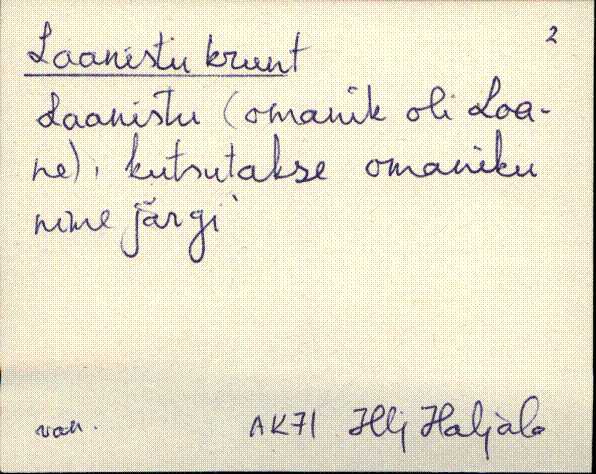 2
Laanistu krunt
Laanistu (omanik oli Laa-
ne), kutsutakse omaniku
nime järgi
van. AK71 Hlj Haljala